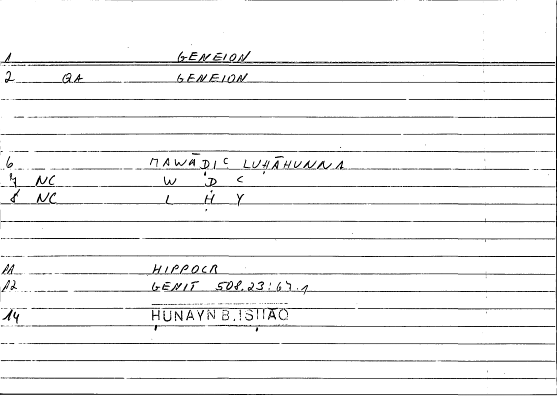 1 GENEION
2 QA GENEION
6 MAWĀḌIC LUḤĀHUNNA
7 NC W Ḍ C
8 NC L Ḥ Y
11 HIPPOCR
12 GENIT 508.23:67.1
14 ḤUNAYN B.ISḤĀQ